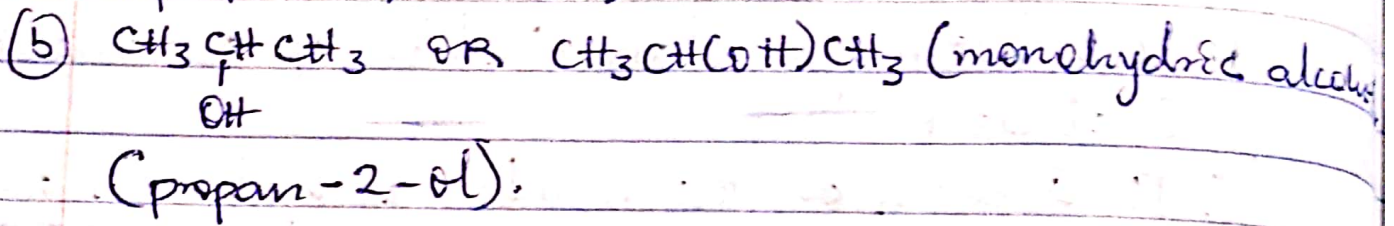 (b) CH3 CH CH3 OR CH3CH(OH)CH3 (monohydric alcohol
OH
(propan-2-ol).